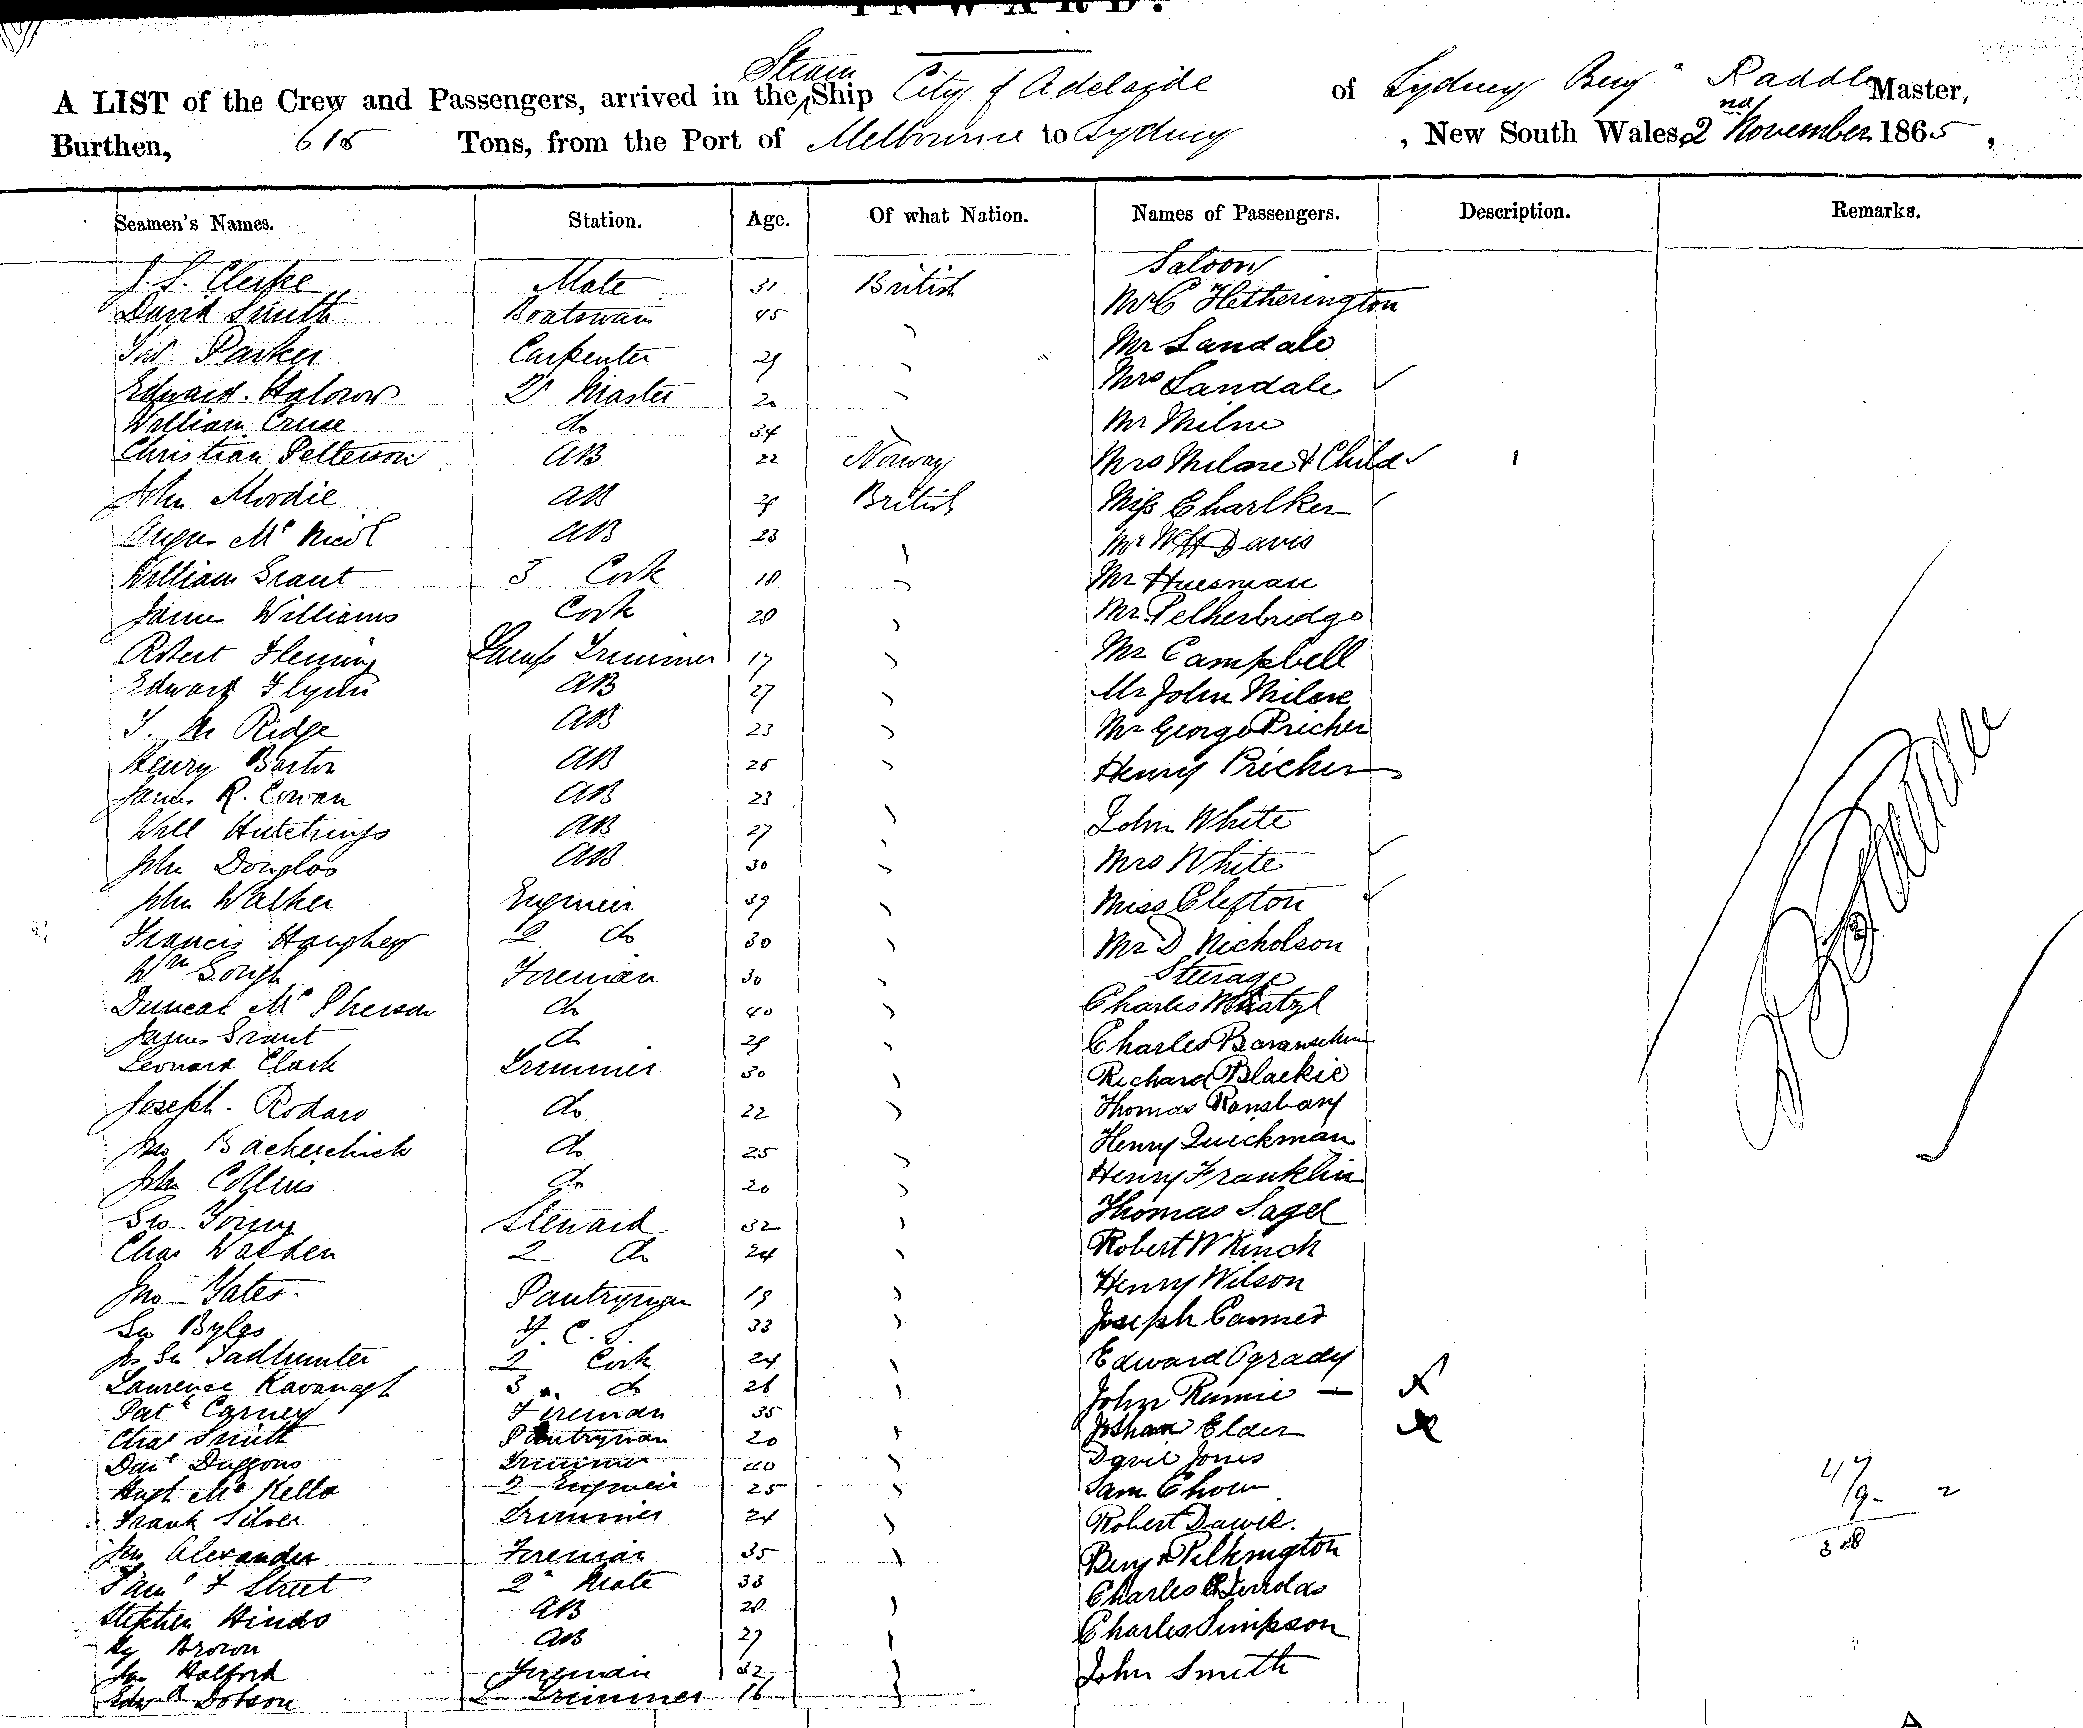 INWARD.
A LIST of the Crew and Passengers, arrived in the Steam Ship City of Adelaide of Sydney Benj Paddle Master,
Burthen, 615 Tons, from the Port of Melbourne to Sydney, New South Wales, 2nd November 1865,
Seamen's Names. Station. Age. Of what Nation. Names of Passengers. Description. Remarks.
Saloon
J. S. Clerke Mate 31 British Mr C Hetherington
David Smith Boatswain 45 Mr Landale
Parker Carpenter 29 Mrs Landale
Edward Master 20 Mr Milne
William Cruse do 34 Mrs Milne & Child
Christian Petterson AB 22 Norway Miss Charlker
John Moodie AB British Mr W H Davis
Angus Mc Nicol AB 23 Mr Huesman
William Grant 3 Cook 18 Mr Petherbridge
James Williams Cook 28 Mr Campbell
Robert Fleming Lamp Trimmer 17 Mr John Milne
Edward Flynn AB 27 Mr George Pricher
Ridge AB 23 Henry Pricher
Henry Barton AB 25 John White
James R. Cowan AB 23 Mrs White
Will Hutchings AB 27 Miss Clifton
John Douglas AB 30 Mr D Nicholson
John Walker Engineer 39 Steerage
Francis Haughey 2 do 30 Charles
Wm Gough Foreman 30 Charles
Duncan Mc Pherson do 40 Richard Blackie
James Grant do 29 Thomas
Leonard Clark Trimmer 30 Henry Queckman
Joseph Rodaro do 22 Henry Franklin
do 25 Thomas Sagel
John Collins do 20 Robert W Kinch
Geo Young Steward 32 Henry Wilson
Chas Walden 2 do 24 Joseph
Jno Yates Pantryman 19 Edward Ogrady
Geo Byles F. C. S. 33 John Rennie
Tadhunter 2 Cook 24 Elder
Laurence Kavanagh 3 do 26 David Jones
Patk Carney Fireman 35 Sam Chow
Chas Smith Pantryman 20 Robert
Danl Duggons Trimmer 40 Benjn Pilkington
Hugh Mc Kella 2 Engineer 25 Charles
Frank Silver Trimmer 24 Charles Simpson
Alexander Foreman 35 John Smith
Saml F Street 2nd Mate 33
Stephen Hinds AB 28
Hy Brown AB 27
Halford Fireman 32
Edwd Dobson Trimmer 16
47
9